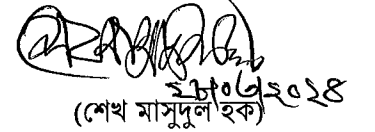 ২৮/০৩/২০২৪
(শেখ মাসুদুল হক)